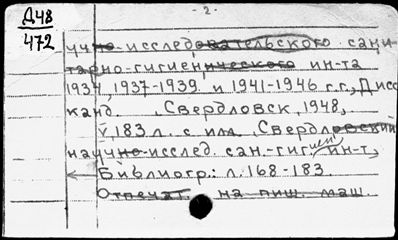 Д48
472
- 2 -
учно-исследовательского сани
тарно-гигиенического ин-та
1934, 1937-1939 и 1941-1946 г.г., Дисс
канд. , Свердловск, 1948,
V, 183 л. с илл. , Свердловский
научно-исслед. сан.-гигиен ин-т,
Библиогр.: л. 168-183.
Отпечат. на пиш. маш.